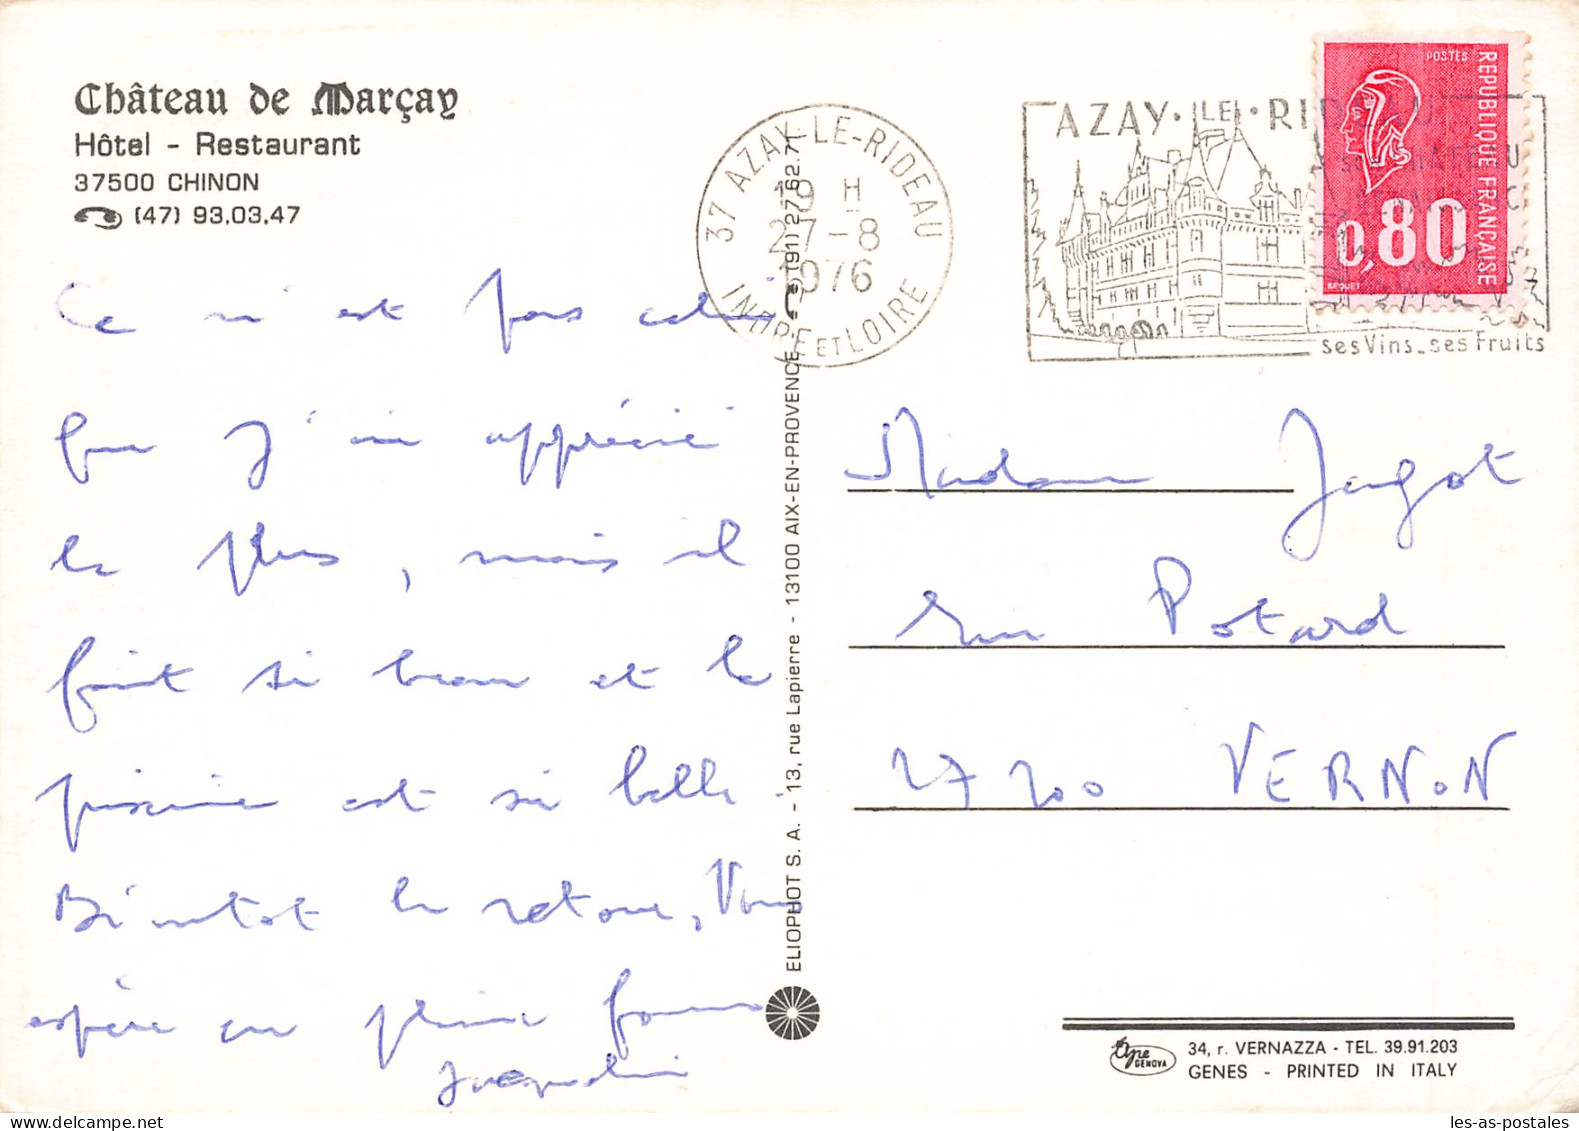 Château de Marçay
Hôtel - Restaurant
37500 CHINON
(47) 93.03.47
Ce n'est pas celui
que j'ai apprécié
le plus, mais il
fait si beau et la
piscine est si belle.
Bientôt le retour, Vous
espère en pleine forme
Jacqueline
ELIOPHOT S. A. - 13, rue Lapierre - 13100 AIX-EN-PROVENCE - (91) 27.62.71
37 AZAY-LE-RIDEAU
19 H
27-8
1976
INDRE ET LOIRE
AZAY·LE·RIDEAU
ses Vins_ses Fruits
POSTES
REPUBLIQUE FRANÇAISE
0,80
BEQUET
Madame Jagot
rue Potard
27200 VERNON
GENOVA
34, r. VERNAZZA - TEL. 39.91.203
GENES - PRINTED IN ITALY
les-as-postales